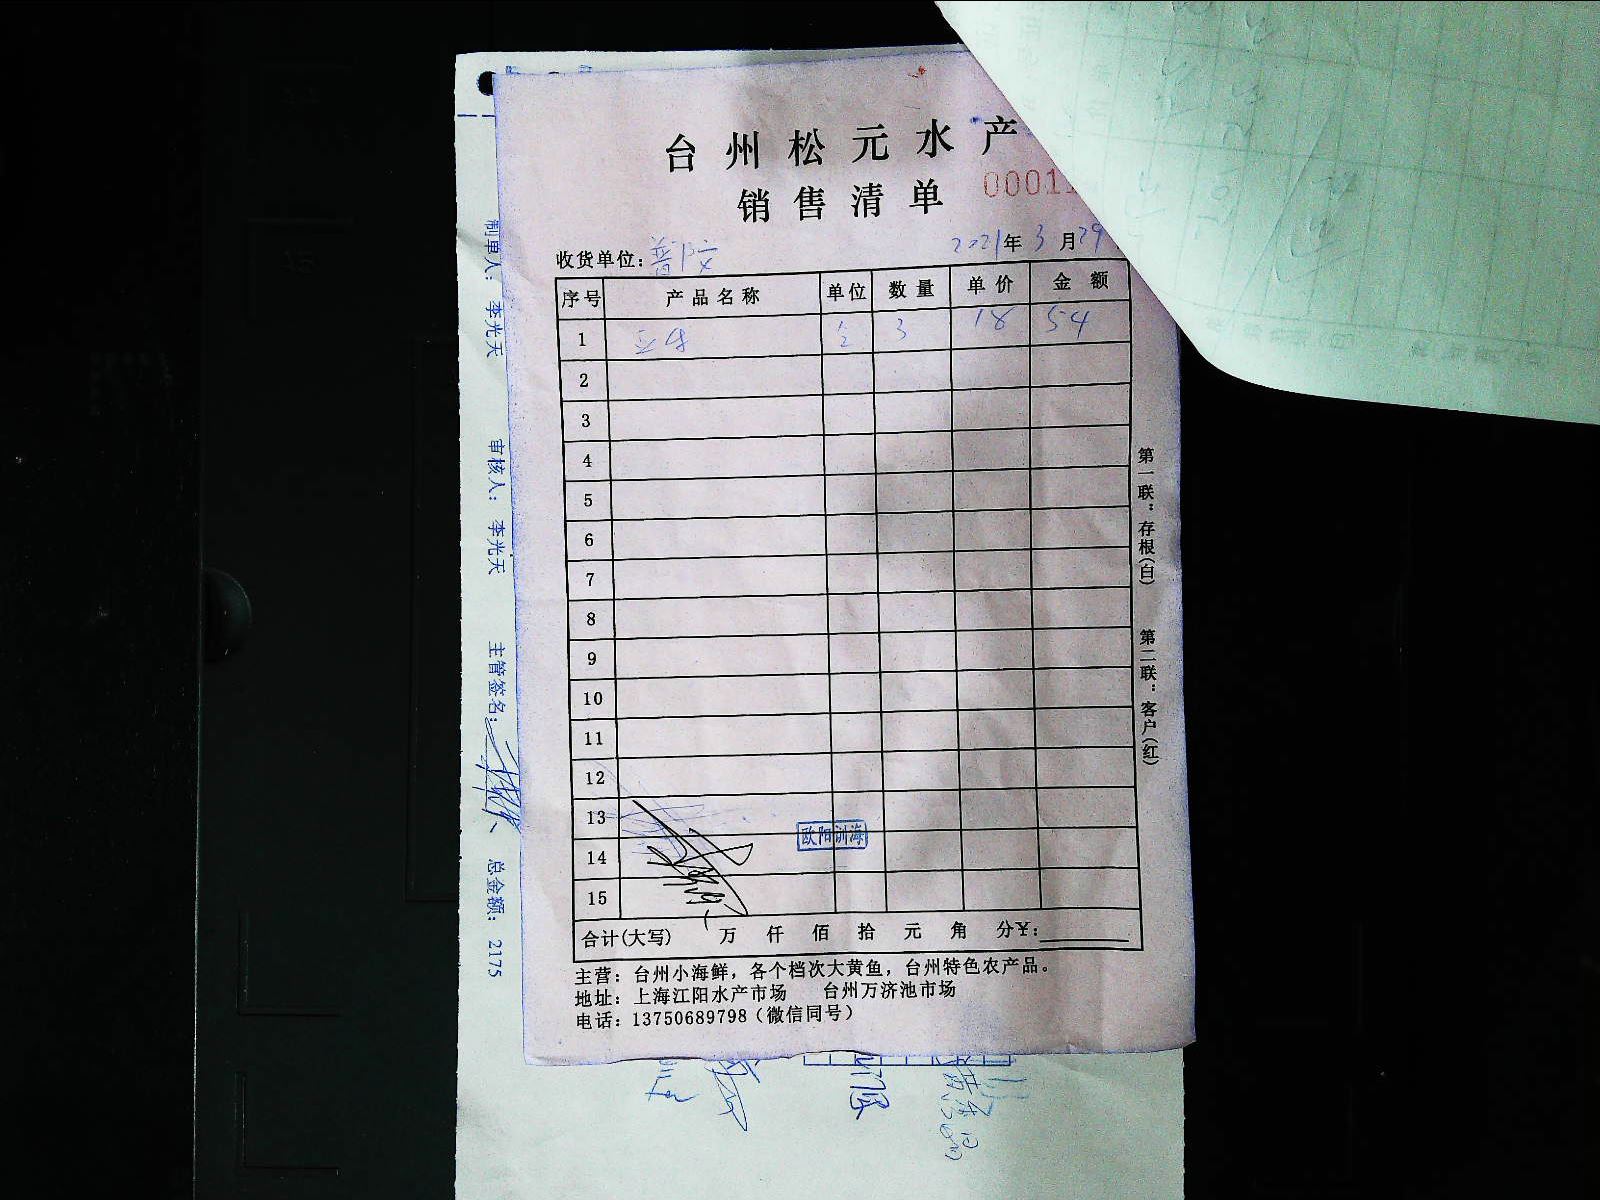 台州松元水产
销售清单
00011
收货单位：普陀 2021年3月29
序号 产品名称 单位 数量 单价 金额
1 3 18 54
2
3
4
5
6
7
8
9
10
11
12
13
欧阳训海
14
15
合计(大写) 万 仟 佰 拾 元 角 分¥：
主营：台州小海鲜，各个档次大黄鱼，台州特色农产品。
地址：上海江阳水产市场 台州万济池市场
电话：13750689798（微信同号）
第一联：存根(白) 第二联：客户(红)
制单人：李光天 审核人：李光天 主管签名： 总金额：2175